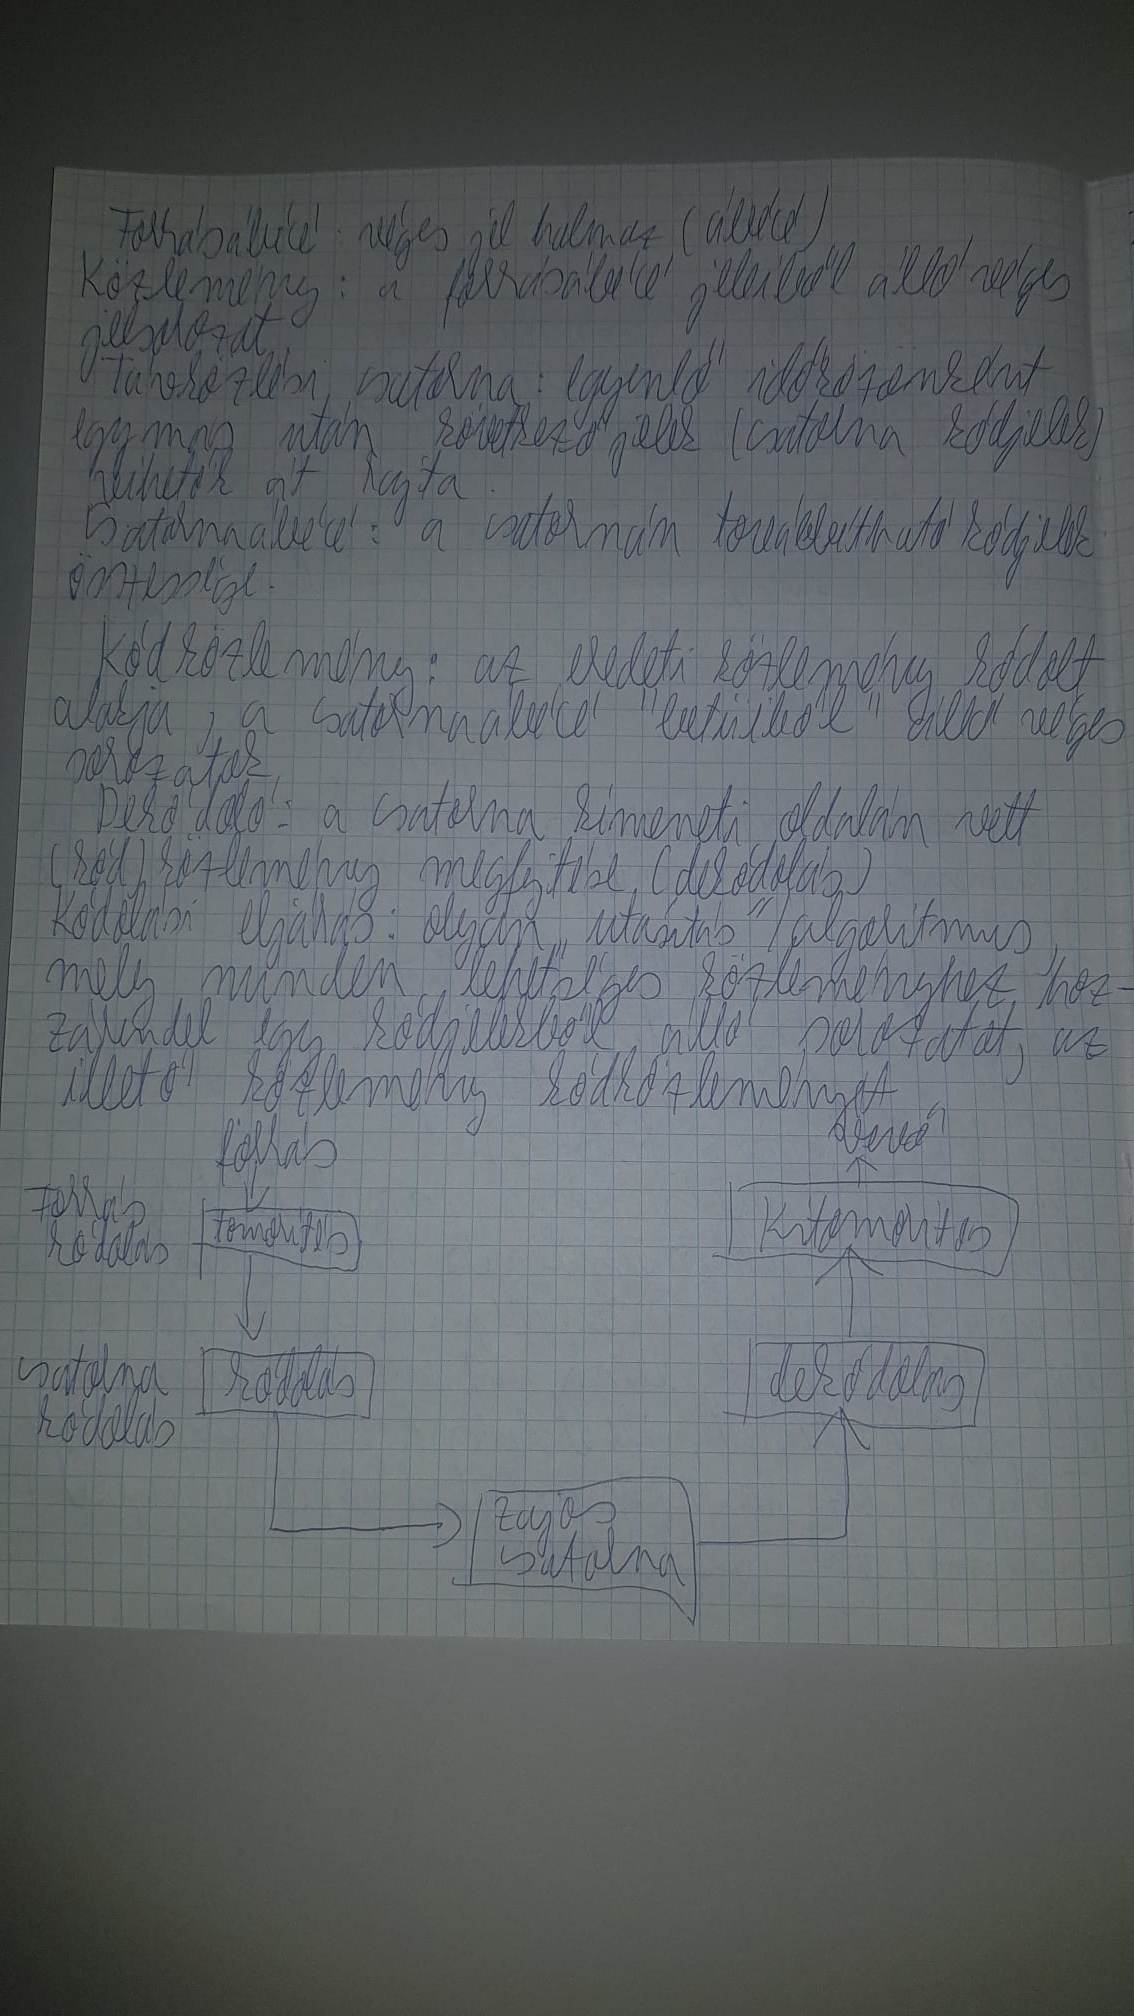 Forrásábécé: véges jel halmaz (ábécé)
Közlemény: a forrásábécé jeleiből álló véges
jelsorozat.
Távközlési csatorna: egyenlő időközönként
egymás után következő jelek (csatorna kódjelek)
vihetők át rajta.
Csatornaábécé: a csatornán továbbítható kódjelek
összessége.
Kódközlemény: az eredeti közlemény kódolt
alakja, a csatornaábécé "betűiből" álló véges
sorozatok.
Dekódoló: a csatorna kimeneti oldalán vett
(kód) közlemény megfejtése. (dekódolás)
Kódolási eljárás: olyan "utasítás"/algoritmus,
mely minden lehetséges közleményhez hoz-
zárendel egy kódjelekből álló sorozatot, az
illető közlemény kódközleményét.
forrás
vevő
Forrás
kódolás
tömörítés
Kitömörítés
csatorna
kódolás
kódolás
dekódolás
zajos
csatorna